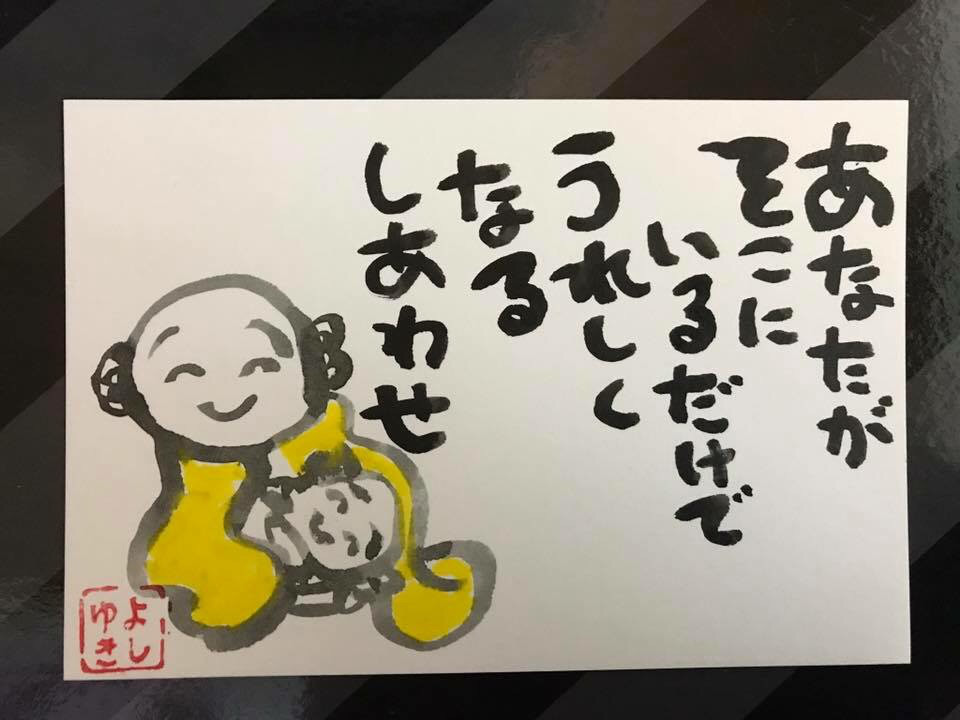 あなたが
そこに
いるだけで
うれしく
なる
しあわせ
よし
ゆき